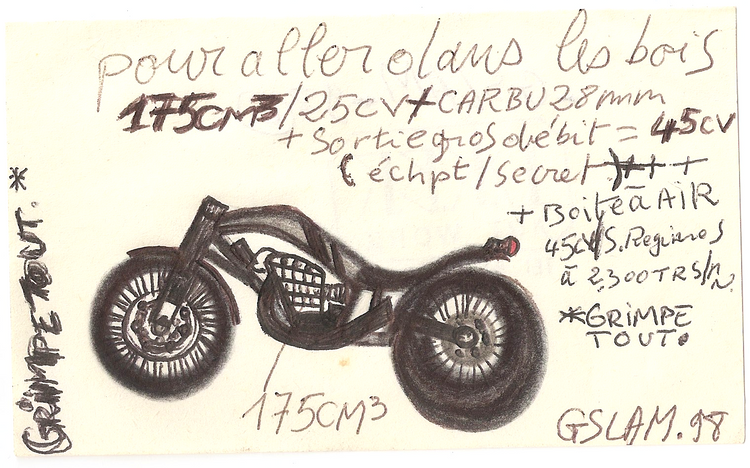 pour aller dans les bois
175CM3/25CV+CARBU28mm
+ Sortie gros débit = 45CV
(échpt/secret)+++
+ Boite à AIR
45CV/S.Regimes
à 2,300TRS/m.
*GRIMPE
TOUT.
GRIMPE TOUT. *
175CM3
GSLAM.98